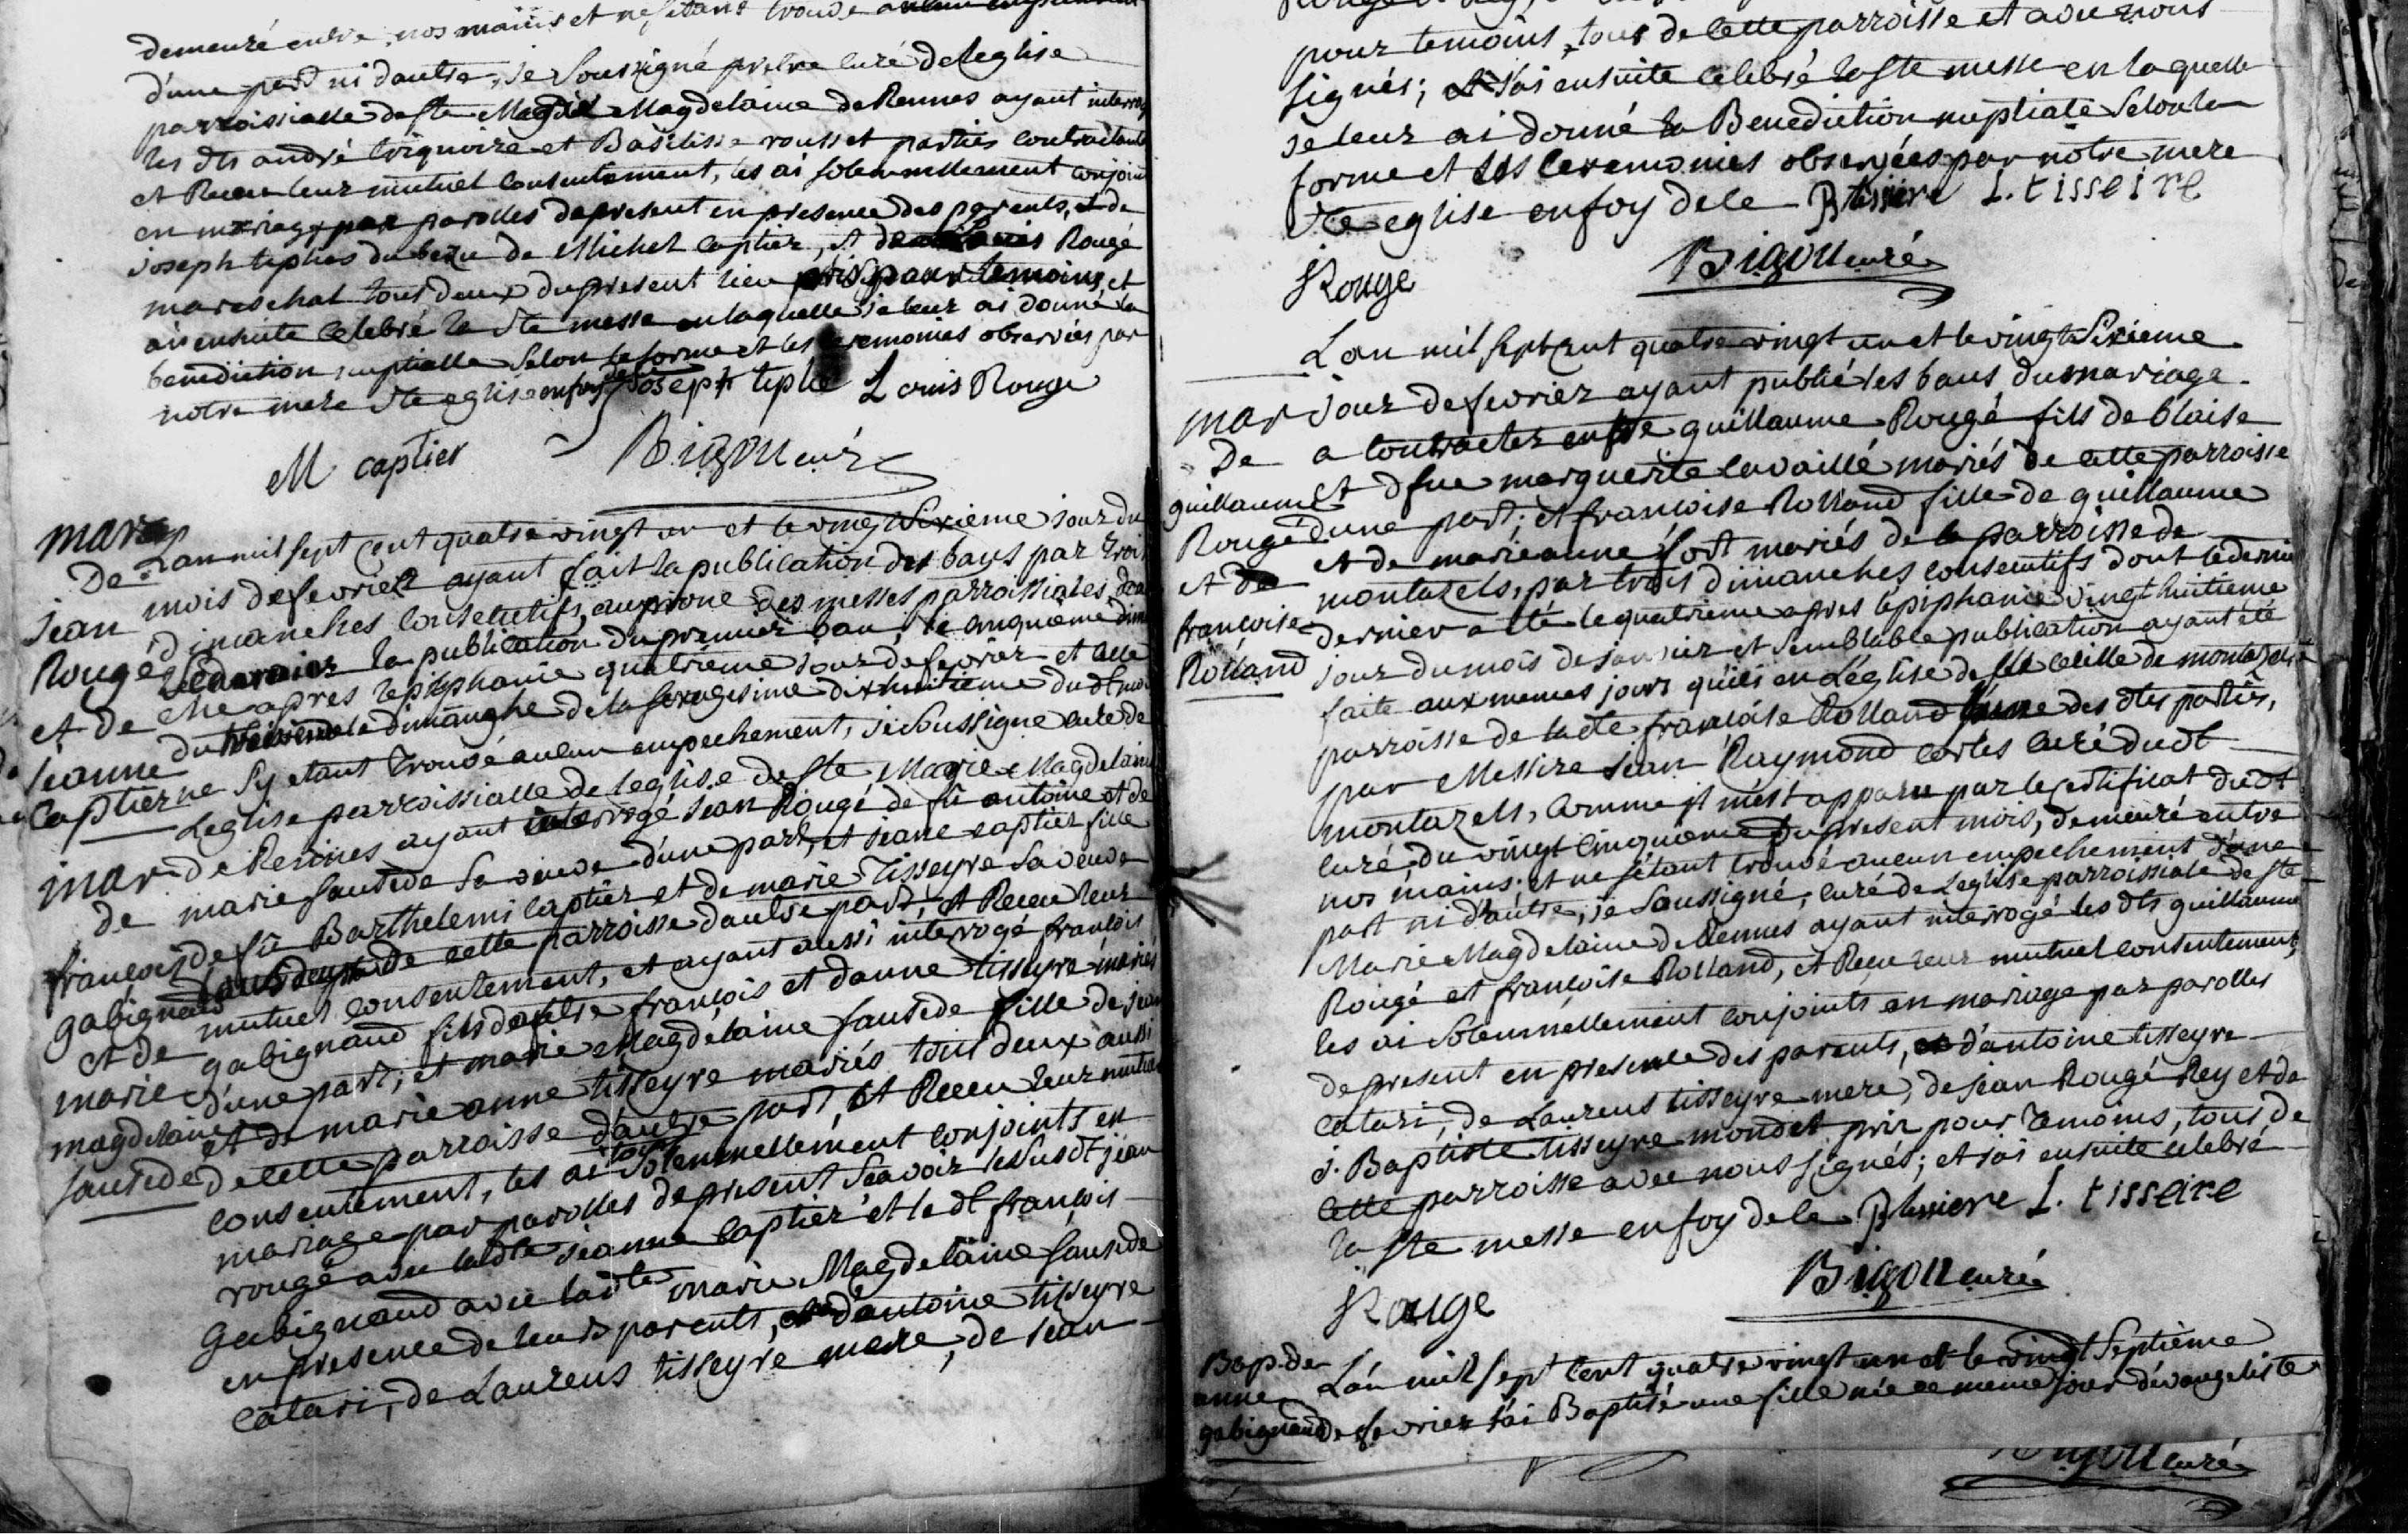 demeuré entre nos mains et ne s'etant trouvé aucun
d'une part ni dautre, je soussigné pretre curé de leglise
parroissialle de ste Magdelaine de Rennes ayant
les dts andré et Basilisse rousset parties contractantes
et Receu leur mutuel consentement, les ai solemnellement conjoints
en mariage par parolles de present en presence des parents, de
joseph teplies du bezu de Michel Captier, et de Rougé
mareschal tous deux du present lieu pris pour temoins, et
ai ensuite celebré la ste messe en laquelle je leur ai donné la
benediction nuptialle selon la forme et les ceremonies observées par
notre mere ste eglise en foy joseph teplie Louis Rouge
M captier Bigou curé
mar
De Lan mil sept cent quatre vingt un et le vingt sixieme jour du
jean mois de fevrier ayant fait la publication des bans par trois
Rougé dimanches consecutifs, au prone des messes parroissiales
la publication du premier ban, le cinquieme
et de che apres lepiphanie quatrième jour de fevrier et celle
jeanne du le dimanche de la sexagesime dixhuitieme du dt mois
Captier ne sy etant trouvé aucun empechement, je soussigne curé de
Leglise parroissialle de leglise de ste Marie Magdelaine
mar de Rennes ayant interrogé jean Rougé de fû antoine et de
de marie sausede sa veuve d'une part, et jeane captier fille
françois de fû Barthelemi captier et de marie Tisseyre sa veuve
gabignaud de cette parroisse dautre part, et Receu leur
et de mutuel consentement, et ayant aussi interrogé françois
marie gabignaud fils dautre françois et danne tisseyre mariés
magdelaine d'une part; et marie Magdelaine sausede fille de jean
sausede et de marie anne tisseyre mariés tous deux aussi
de cette parroisse d'autre part, et Receu leur mutuel
consentement, les ai solemnellement conjoints en
mariage par parolles de present sçavoir le susdt jean
rougé avec ladte jeanne captier et le dt françois
Gabignaud avec ladte marie Magdelaine sausede
en presence de leurs parents, d'antoine tisseyre
catari, de Laurens tisseyre mere, de jean
pour temoins, tous de cette parroisse et avec nous
signés; et j'ai ensuite celebré la ste messe en laquelle
je leur ai donné la Benediction nuptiale selon la
forme et les ceremonies observées par notre mere
ste eglise en foy de ce Blssiere L. tisseire
Rouge Bigou curé
Lan mil sept cent quatre vingt un et le vingt sixieme
mar jour de fevrier ayant publié les bans du mariage
De a contracter entre guillaume Rougé fils de blaise
guillaume et d fue marguerite lavaillé mariés de cette parroisse
Rougé d'une part; et françoise Rolland fille de guillaume
et de et de marie anne fort mariés de la parroisse de
françoise montazels, par trois dimanches consecutifs dont le dernier
Rolland dernier a été le quatrieme apres lepiphanie vingt huitieme
jour du mois de janvier et semblable publication ayant été
faite aux memes jours qu'ici en Léglise de ste Cecille de montazels
parroisse de ladte françoise Rolland l'une des dtes parties,
par Messire jean Raymond cartes curé dudt
montazels, comme il m'est apparu par le certificat dudt
curé du vingt cinquieme du present mois, demeuré entre
nos mains; et ne s'étant trouvé aucun empechement d'une
part ni d'autre, je soussigné, curé de Léglise parroissiale de ste
Marie Magdelaine de Rennes ayant interrogé les dts guillaume
Rougé et françoise Rolland, et Receu leur mutuel consentement,
les ai solemnellement conjoints en mariage par parolles
de present en presence des parents, d'antoine tisseyre
catari, de Laurens tisseyre mere, de jean Rougé Rey et de
j. Baptiste tisseyre mondet pris pour temoins, tous de
cette parroisse avec nous signés; et j'ai ensuite celebré
la ste messe en foy de ce Blssiere L. tisseire
Rouge Bigou curé
Bap. de Lan mil sept cent quatre vingt un et le vingt septième
anne
gabignaud de fevrier j'ai Baptisé une fille née ce meme jour d'évangeliste
Bigou curé